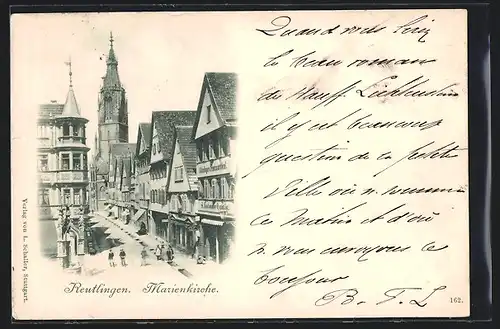 Quand vous lirez
le beau roman
de Hauff Lichtenstein
il y est beaucoup
question de la petite
Ville où n. sommes
ce Matin et d'où
n. vous envoyons le
bonjour
B. T. L.
Reutlingen. Marienkirche.
Verlag von L. Schaller, Stuttgart.
162.